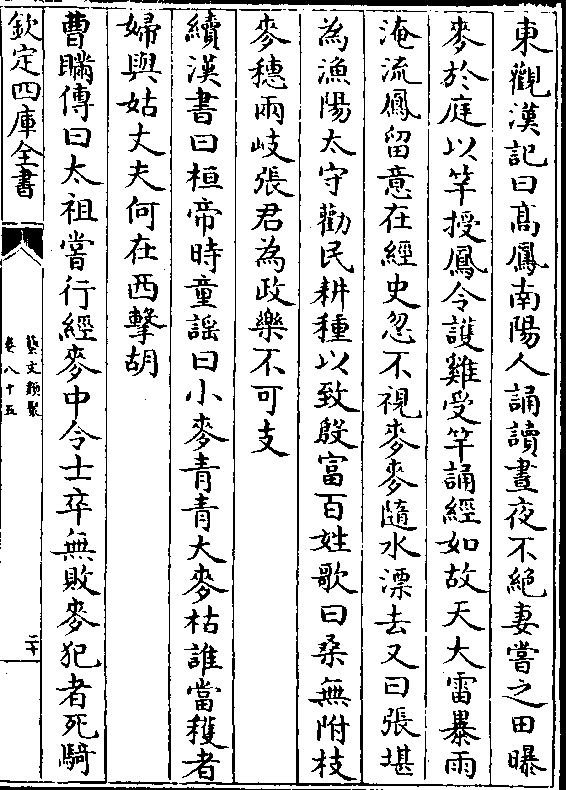 東觀漢記曰高鳳南陽人誦讀晝夜不絶妻嘗之田曝
麥於庭以竿授鳳令護雞受竿誦經如故天大雷暴雨
淹流鳳留意在經史忽不視麥麥隨水漂去又曰張堪
為漁陽太守勸民耕種以致殷富百姓歌曰桑無附枝
麥穗兩岐張君為政樂不可支
續漢書曰桓帝時童謡曰小麥青青大麥枯誰當穫者
婦與姑丈夫何在西擊胡
曹瞞傳曰太祖嘗行經麥中令士卒無敗麥犯者死騎
欽定四庫全書
藝文類聚
卷八十五
二十